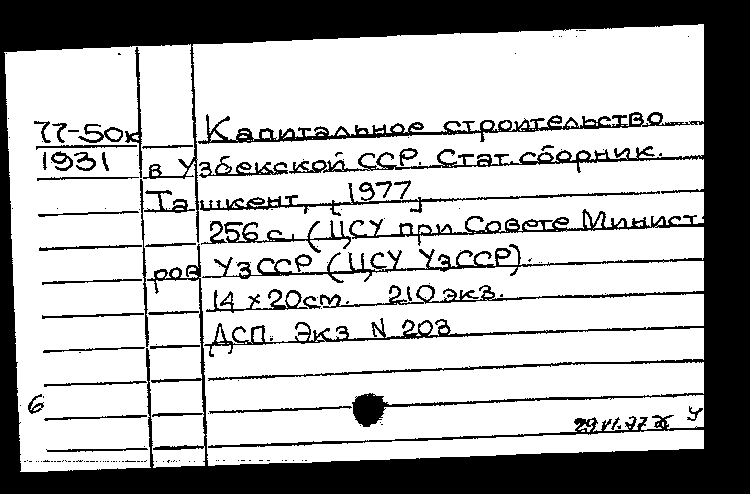 77-50к Капитальное строительство
1931 в Узбекской ССР. Стат. сборник.
Ташкент, [1977]
256 с. (ЦСУ при Совете Минист-
ров УзССР (ЦСУ УзССР).
14 × 20 см. 210 экз.
ДСП. Экз N 203
6
29.VI.77
У